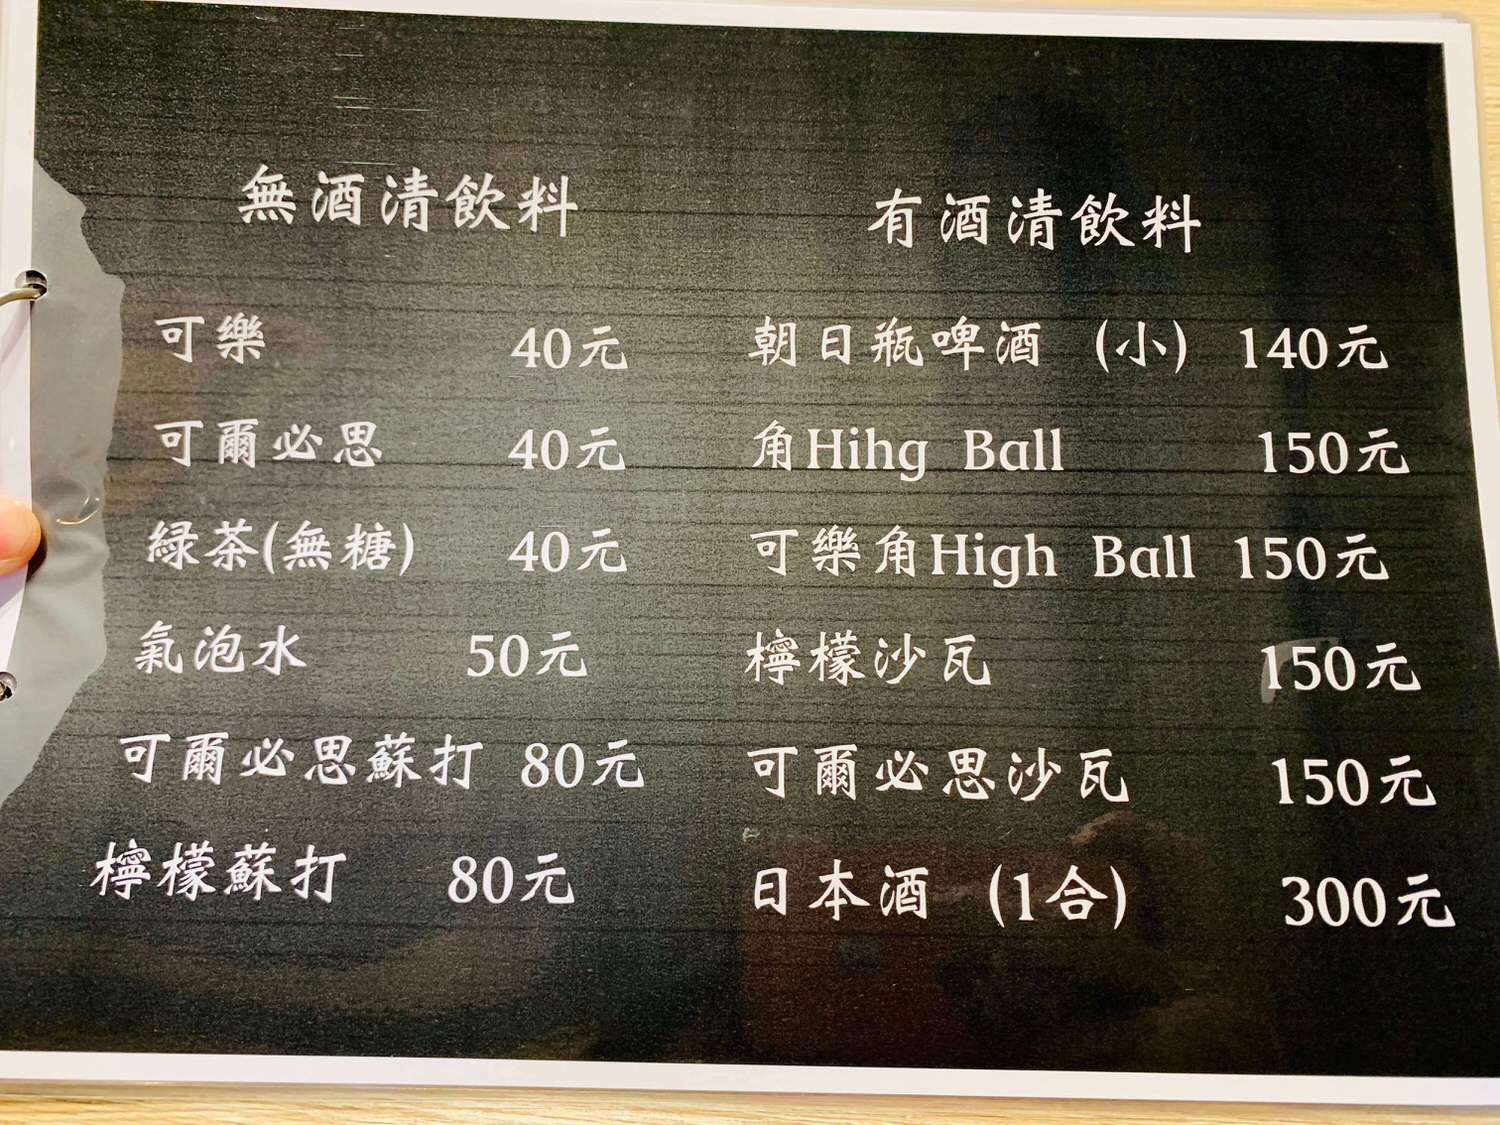 無酒清飲料
可樂 40元
可爾必思 40元
緑茶(無糖) 40元
氣泡水 50元
可爾必思蘇打 80元
檸檬蘇打 80元
有酒清飲料
朝日瓶啤酒 (小) 140元
角Hihg Ball 150元
可樂角High Ball 150元
檸檬沙瓦 150元
可爾必思沙瓦 150元
日本酒 (1合) 300元